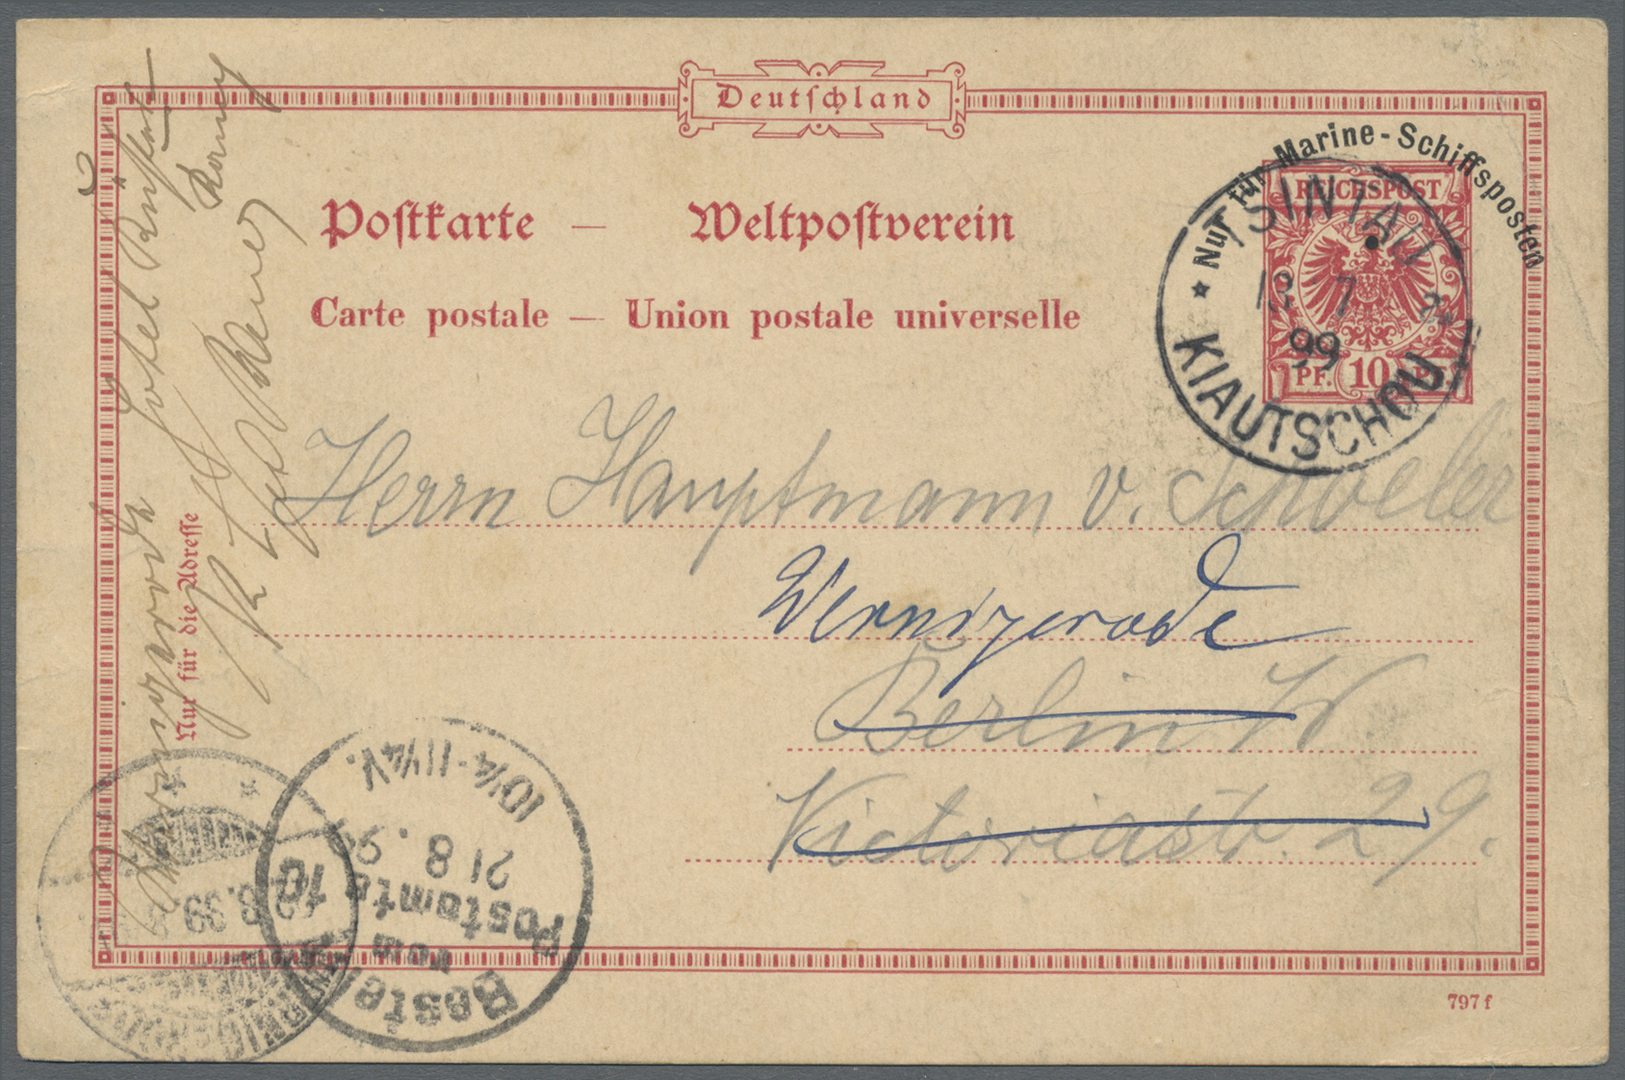 Deutſchland
Nur für Marine-Schiffsposten
REICHSPOST
PF. 10 PF.
TSINTAU
13 7
99
KIAUTSCHOU
Poſtkarte — Weltpoſtverein
Carte postale — Union postale universelle
Herrn Hauptmann v. Schoeler
Wernigerode
Berlin W
Victoriastr. 29.
Nur für die Adreſſe
Wernigerode Hotel
Bestellt
vom
Postamte 10
21 8.9
10¼-11¼V.
WERNIGERODE
8.99
797 f